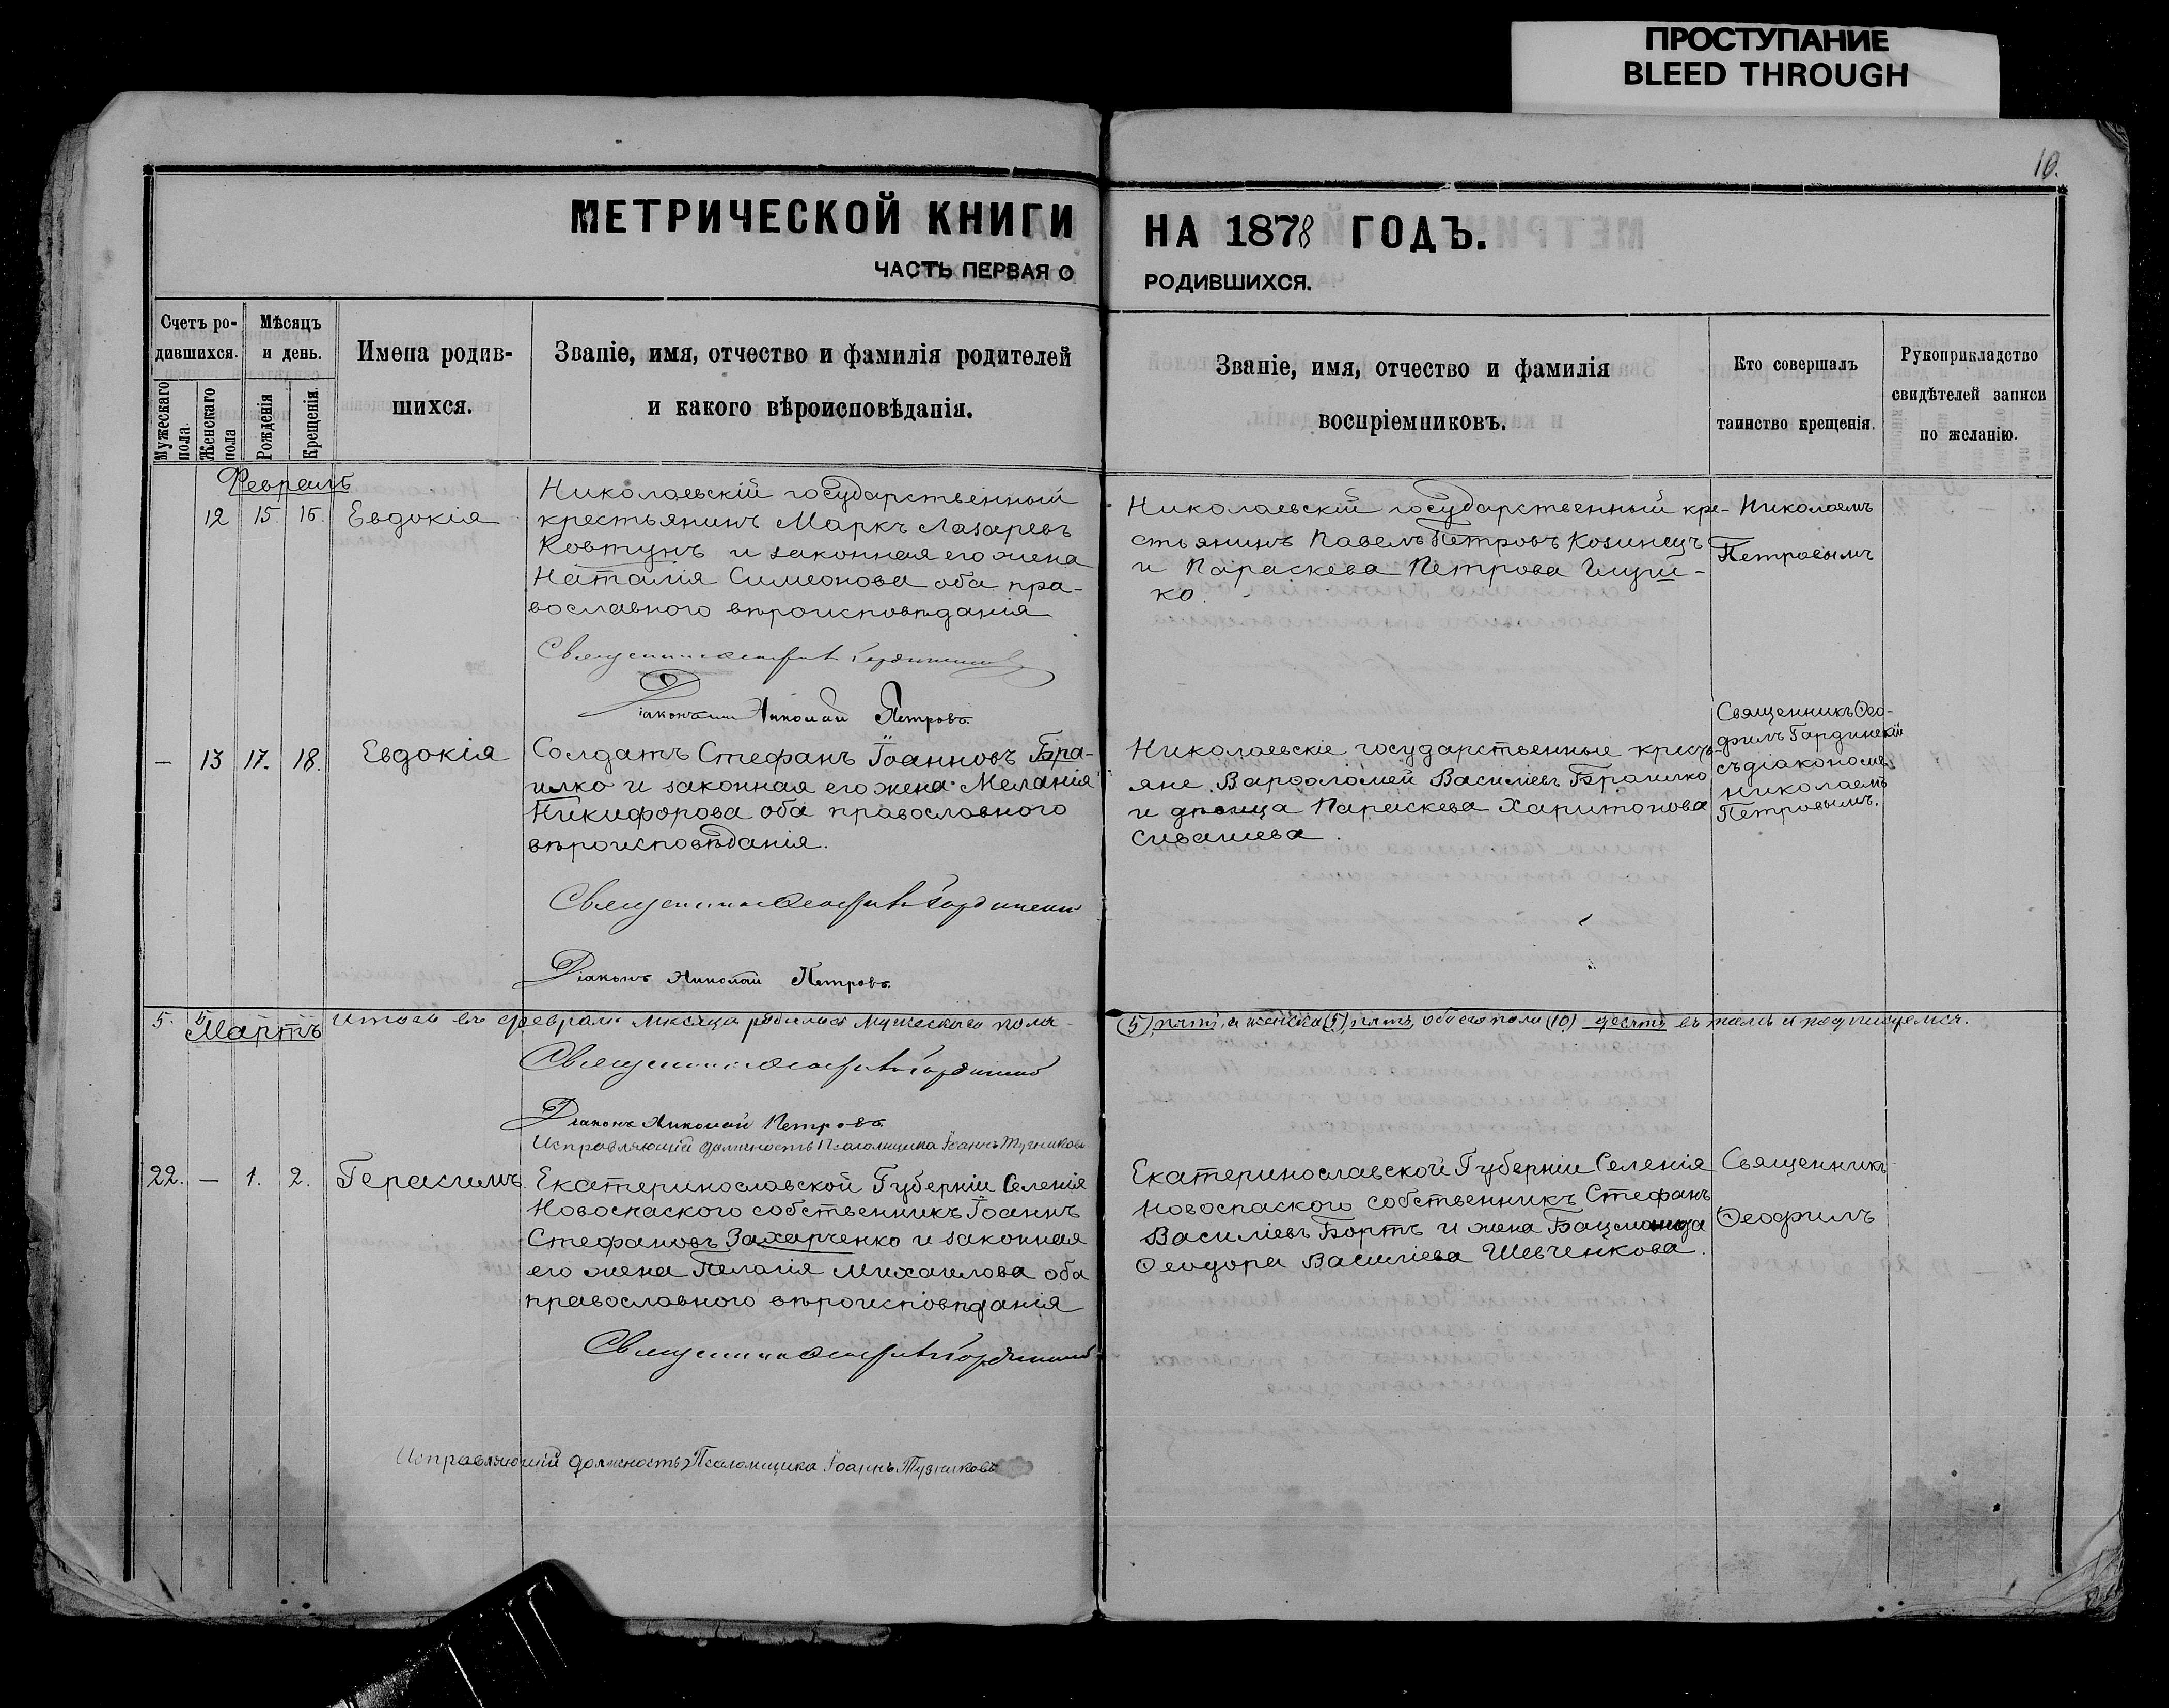 ПРОСТУПАНИЕ
BLEED THROUGH
10.
МЕТРИЧЕСКОЙ КНИГИ НА 1878 ГОДЪ.
ЧАСТЬ ПЕРВАЯ О РОДИВШИХСЯ.
Счетъ родившихся.
Мужескаго пола.
Женскаго пола
Мѣсяцъ и день.
Рожденія
Крещенія.
Имена родив-
шихся.
Званіе, имя, отчество и фамилія родителей
и какого вѣроисповѣданія.
Званіе, имя, отчество и фамилія
воспріемниковъ.
Кто совершалъ
таинство крещенія.
Рукоприкладство
свидѣтелей записи
по желанію.
Февраль
12 15. 16. Евдокія
Николаевскій государственный
крестьянинъ Маркъ Лазаревъ
Ковтунъ и законная его жена
Наталія Симеонова оба пра-
вославнаго вѣроисповѣданія
Николаевскій государственный кре-
стьянинъ Павелъ Петровъ Козинецъ
и Параскева Петрова
ко.
Николаемъ
Петровымъ
Діаконъ Николай Петровъ
— 13 17. 18. Евдокія
Солдатъ Стефанъ Іоанновъ Бра-
илко и законная его жена Меланія
Никифорова оба православного
вѣроисповѣданія.
Николаевскіе государственные кресть-
яне Варфоломей Василіевъ Браилко
и дѣвица Параскева Харитонова
Сивашева.
Священникъ Ѳео-
филъ Гординскій
съ діакономъ
Николаемъ
Петровымъ.
Священникъ Ѳеофилъ Гординскій
Діаконъ Николай Петровъ
5. 5 Итого въ февралѣ мѣсяцѣ родилось мужескаго пола
(5) пять, а женска (5) пять, обоего пола (10) десять въ томъ и подписуемся.
Мартъ
Священникъ Ѳеофилъ Гординскій
Діаконъ Николай Петровъ
Исправляющій должность Псаломщика Іоаннъ Тузниковъ
22. — 1. 2. Герасимъ.
Екатеринославской Губерніи Селенія
Новоспаского собственникъ Іоаннъ
Стефановъ Захарченко и законная
его жена Пелагія Михаилова оба
православного вѣроисповѣданія
Екатеринославской Губерніи Селенія
Новоспаского собственникъ Стефанъ
Василіевъ Бортъ и жена
Ѳеодора Василіева Шевченкова.
Священникъ
Ѳеофилъ
Священникъ Ѳеофилъ Гординскій
Исправляющій должность Псаломщика Іоаннъ Тузниковъ